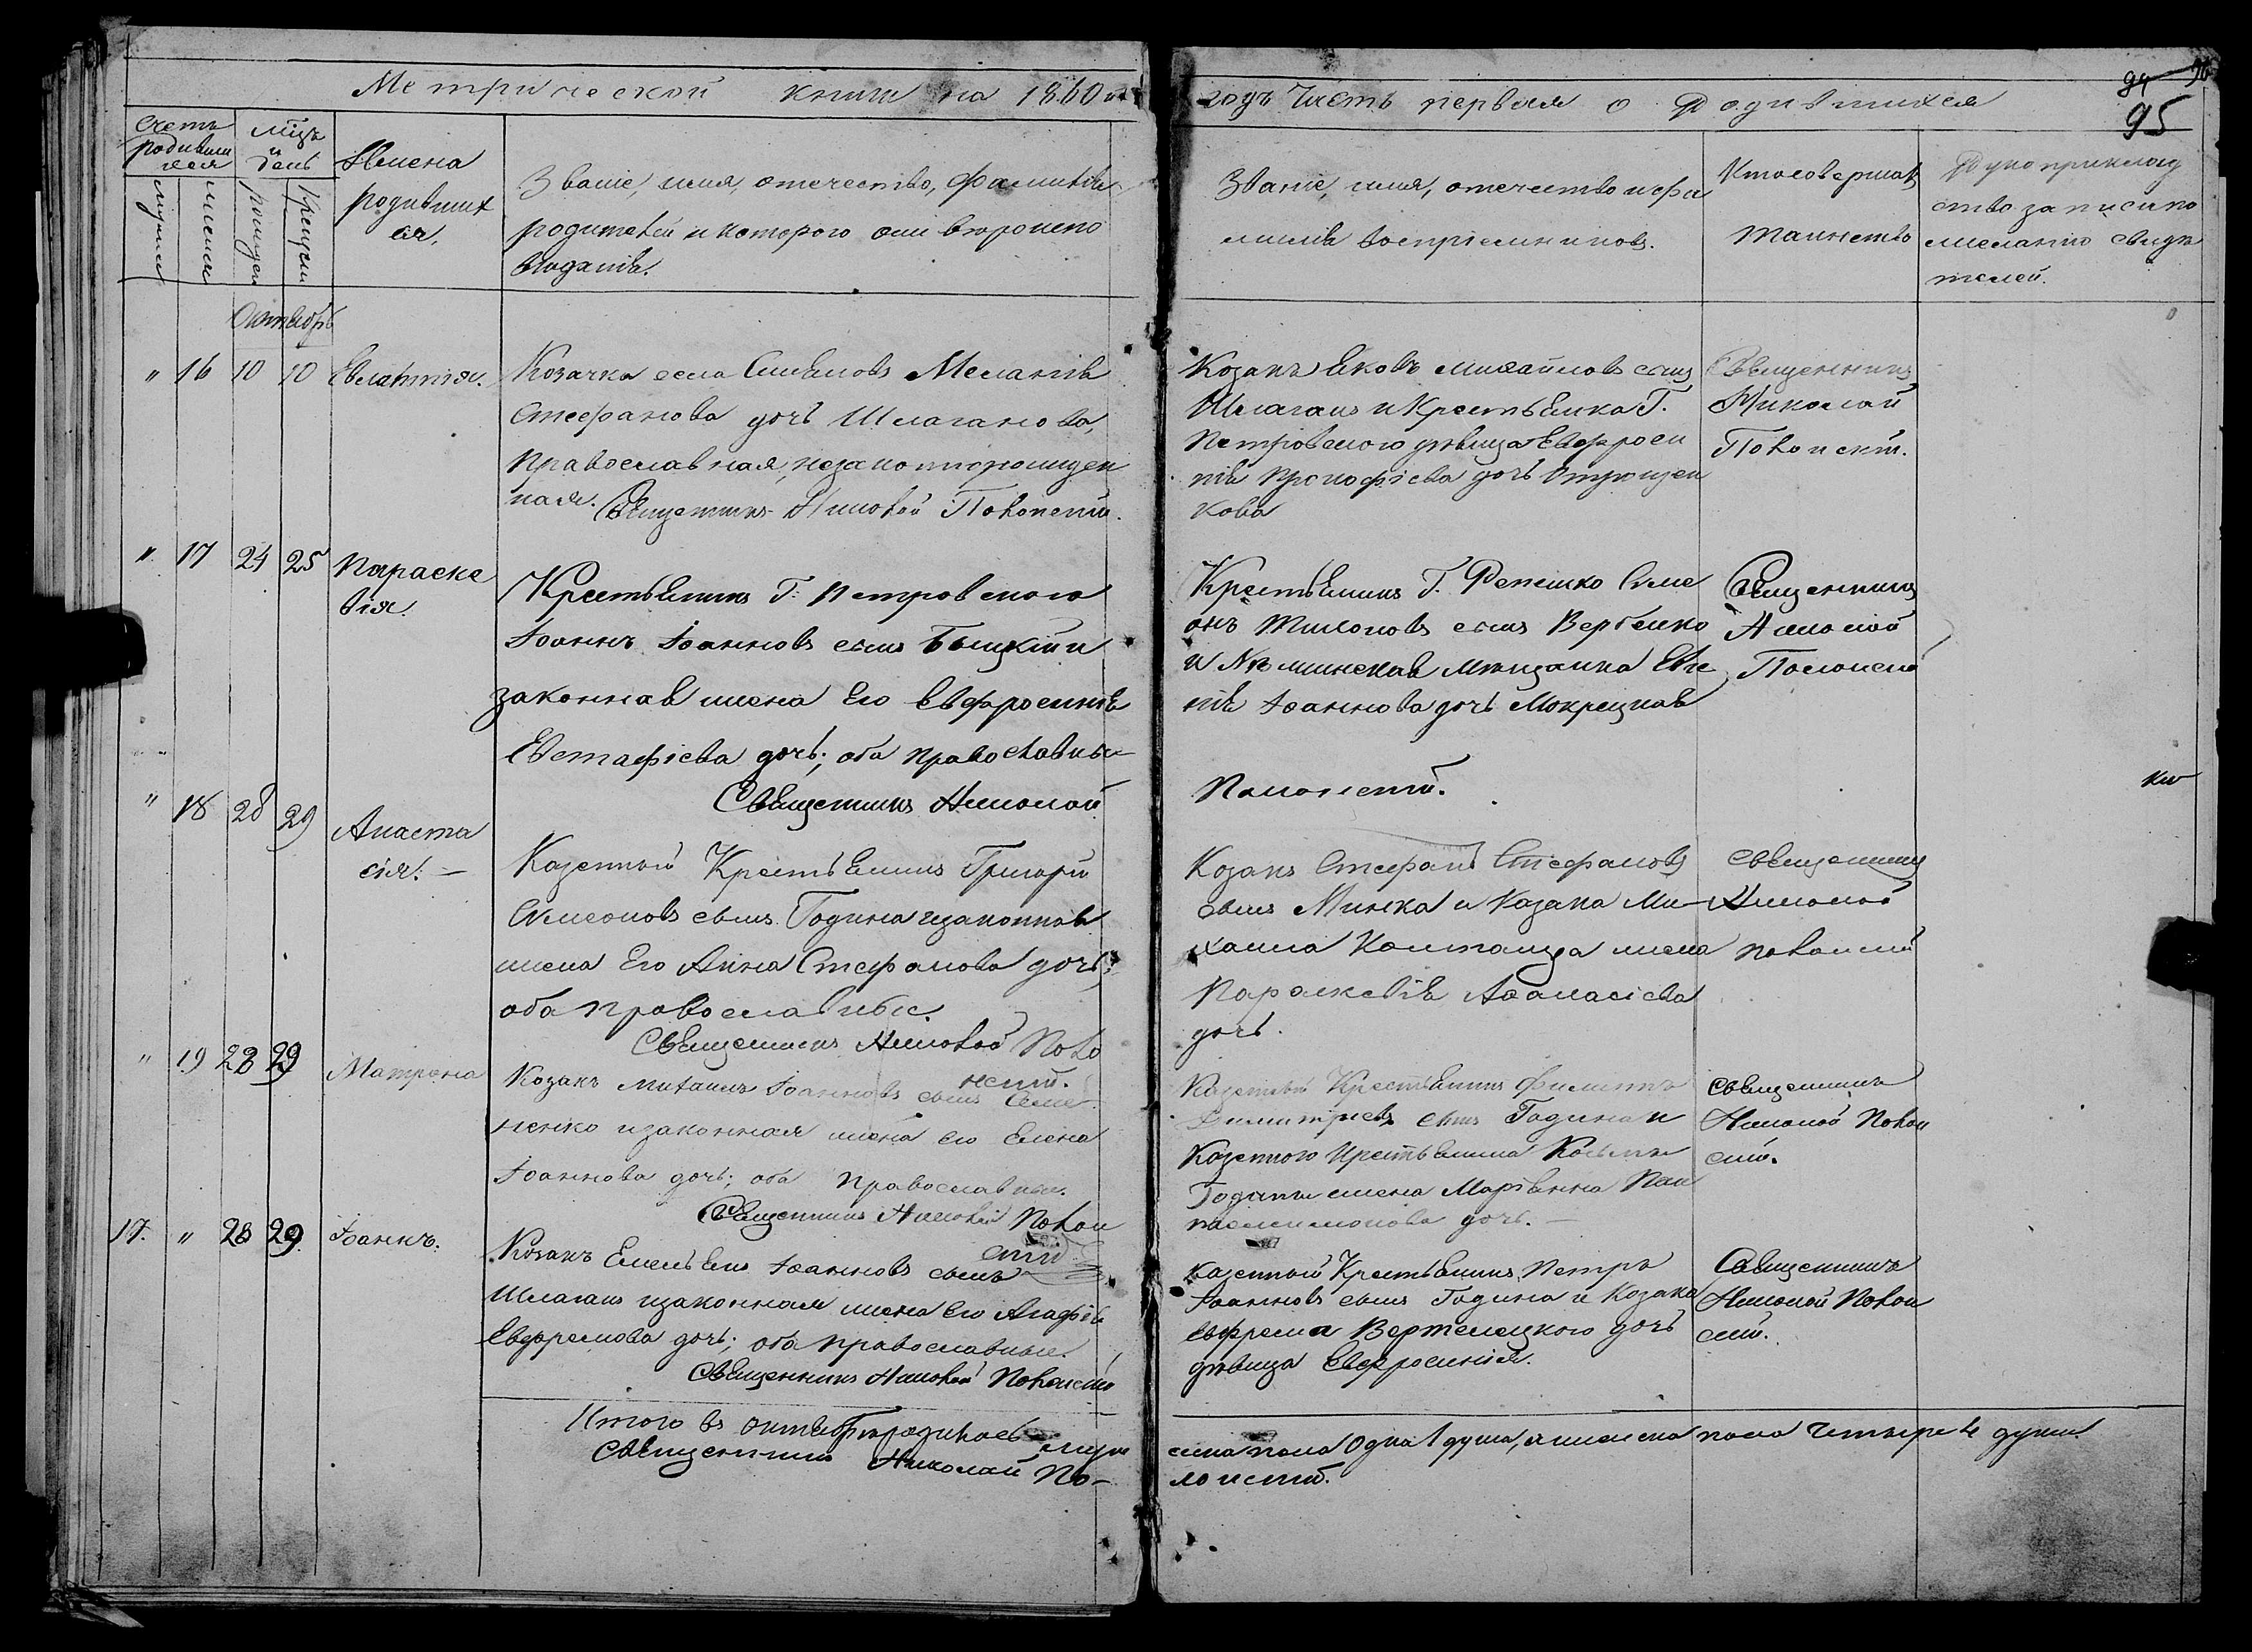 Метрической книги на 1860й
годъ Часть первая о Родившихся
94
95
Счетъ родивших ся
Мужеск
женска
Мцъ и день
рожден
Крещен
Имена родивших ся.
Званіе, имя, отечество, фамилія
родителей и которого они вѣроиспо
вѣданія.
Званіе, имя, отечество и фа
милія воспріемниковъ.
Кто совершал
Таинство
Рукоприклад
ство записи по
желанію свидѣ
телей.
Октябрь
" 16 10 10 Евлампія.
Козачка села Меланія
Стефанова дочь Шлаганова,
православная, незаконнорожден
ная. Священникъ Николай Полонскій.
Козакъ Яковъ Михайловъ сынъ
Шлаганъ и Крестьянка Г.
Петровского дѣвица Евфроси
нія Прокофіева дочь
кова
Священникъ
Николай
Полонскій.
" 17 24 25 Параске
вія.
Крестьянинъ Г. Петровского
Іоаннъ Іоанновъ сынъ и
законная жена Его Евфросинія
Евстафіева дочь; оба православные
Священникъ Николай
Полонскій.
Крестьянинъ Г. Симе
онъ Тихоновъ сынъ Вербенко
и мѣщанка Евге
нія Іоаннова дочь
Священникъ
Николай
Полонскій
" 18 28 29 Анаста
сія. —
Казенный Крестьянинъ Григорій
Симеоновъ сынъ Година и законная
жена Его Анна Стефанова дочь;
оба православные.
Священникъ Николай Поло
нскій.
Козакъ Стефанъ Стефановъ
сынъ Минка и Козака Ми-
хаила жена
Параскевія Афанасіева
дочь.
Священникъ
Николай
Полонскій
" 19 28 29 Матрона
Козакъ Михаилъ Іоанновъ сынъ Семе
ненко и законная жена его Елена
Іоаннова дочь; оба православные.
Священникъ Николай Полон
скій
Казенный Крестьянинъ Филиппъ
Димитріевъ сынъ Година и
Казенного Крестьянина Косьмы
Годины жена Маріанна Пан
телеимонова дочь. —
Священникъ
Николай Полон
скій.
17. " 28 29. Іоаннъ.
Козакъ Емельянъ Іоанновъ сынъ
Шлаганъ и законная жена его Агафія
Евфремова дочь; оба православные.
Священникъ Николай Полонскій
Казенный Крестьянинъ Петръ
Іоанновъ сынъ Година и Козака
Евфрема Вертелецкого дочь
дѣвица Евфросинія.
Священникъ
Николай Полон
скій.
Итого въ октябрѣ родилось муже
ска пола Одна 1 душа, а женска пола Четыре 4 души.
Священникъ Николай По-
лонскій.